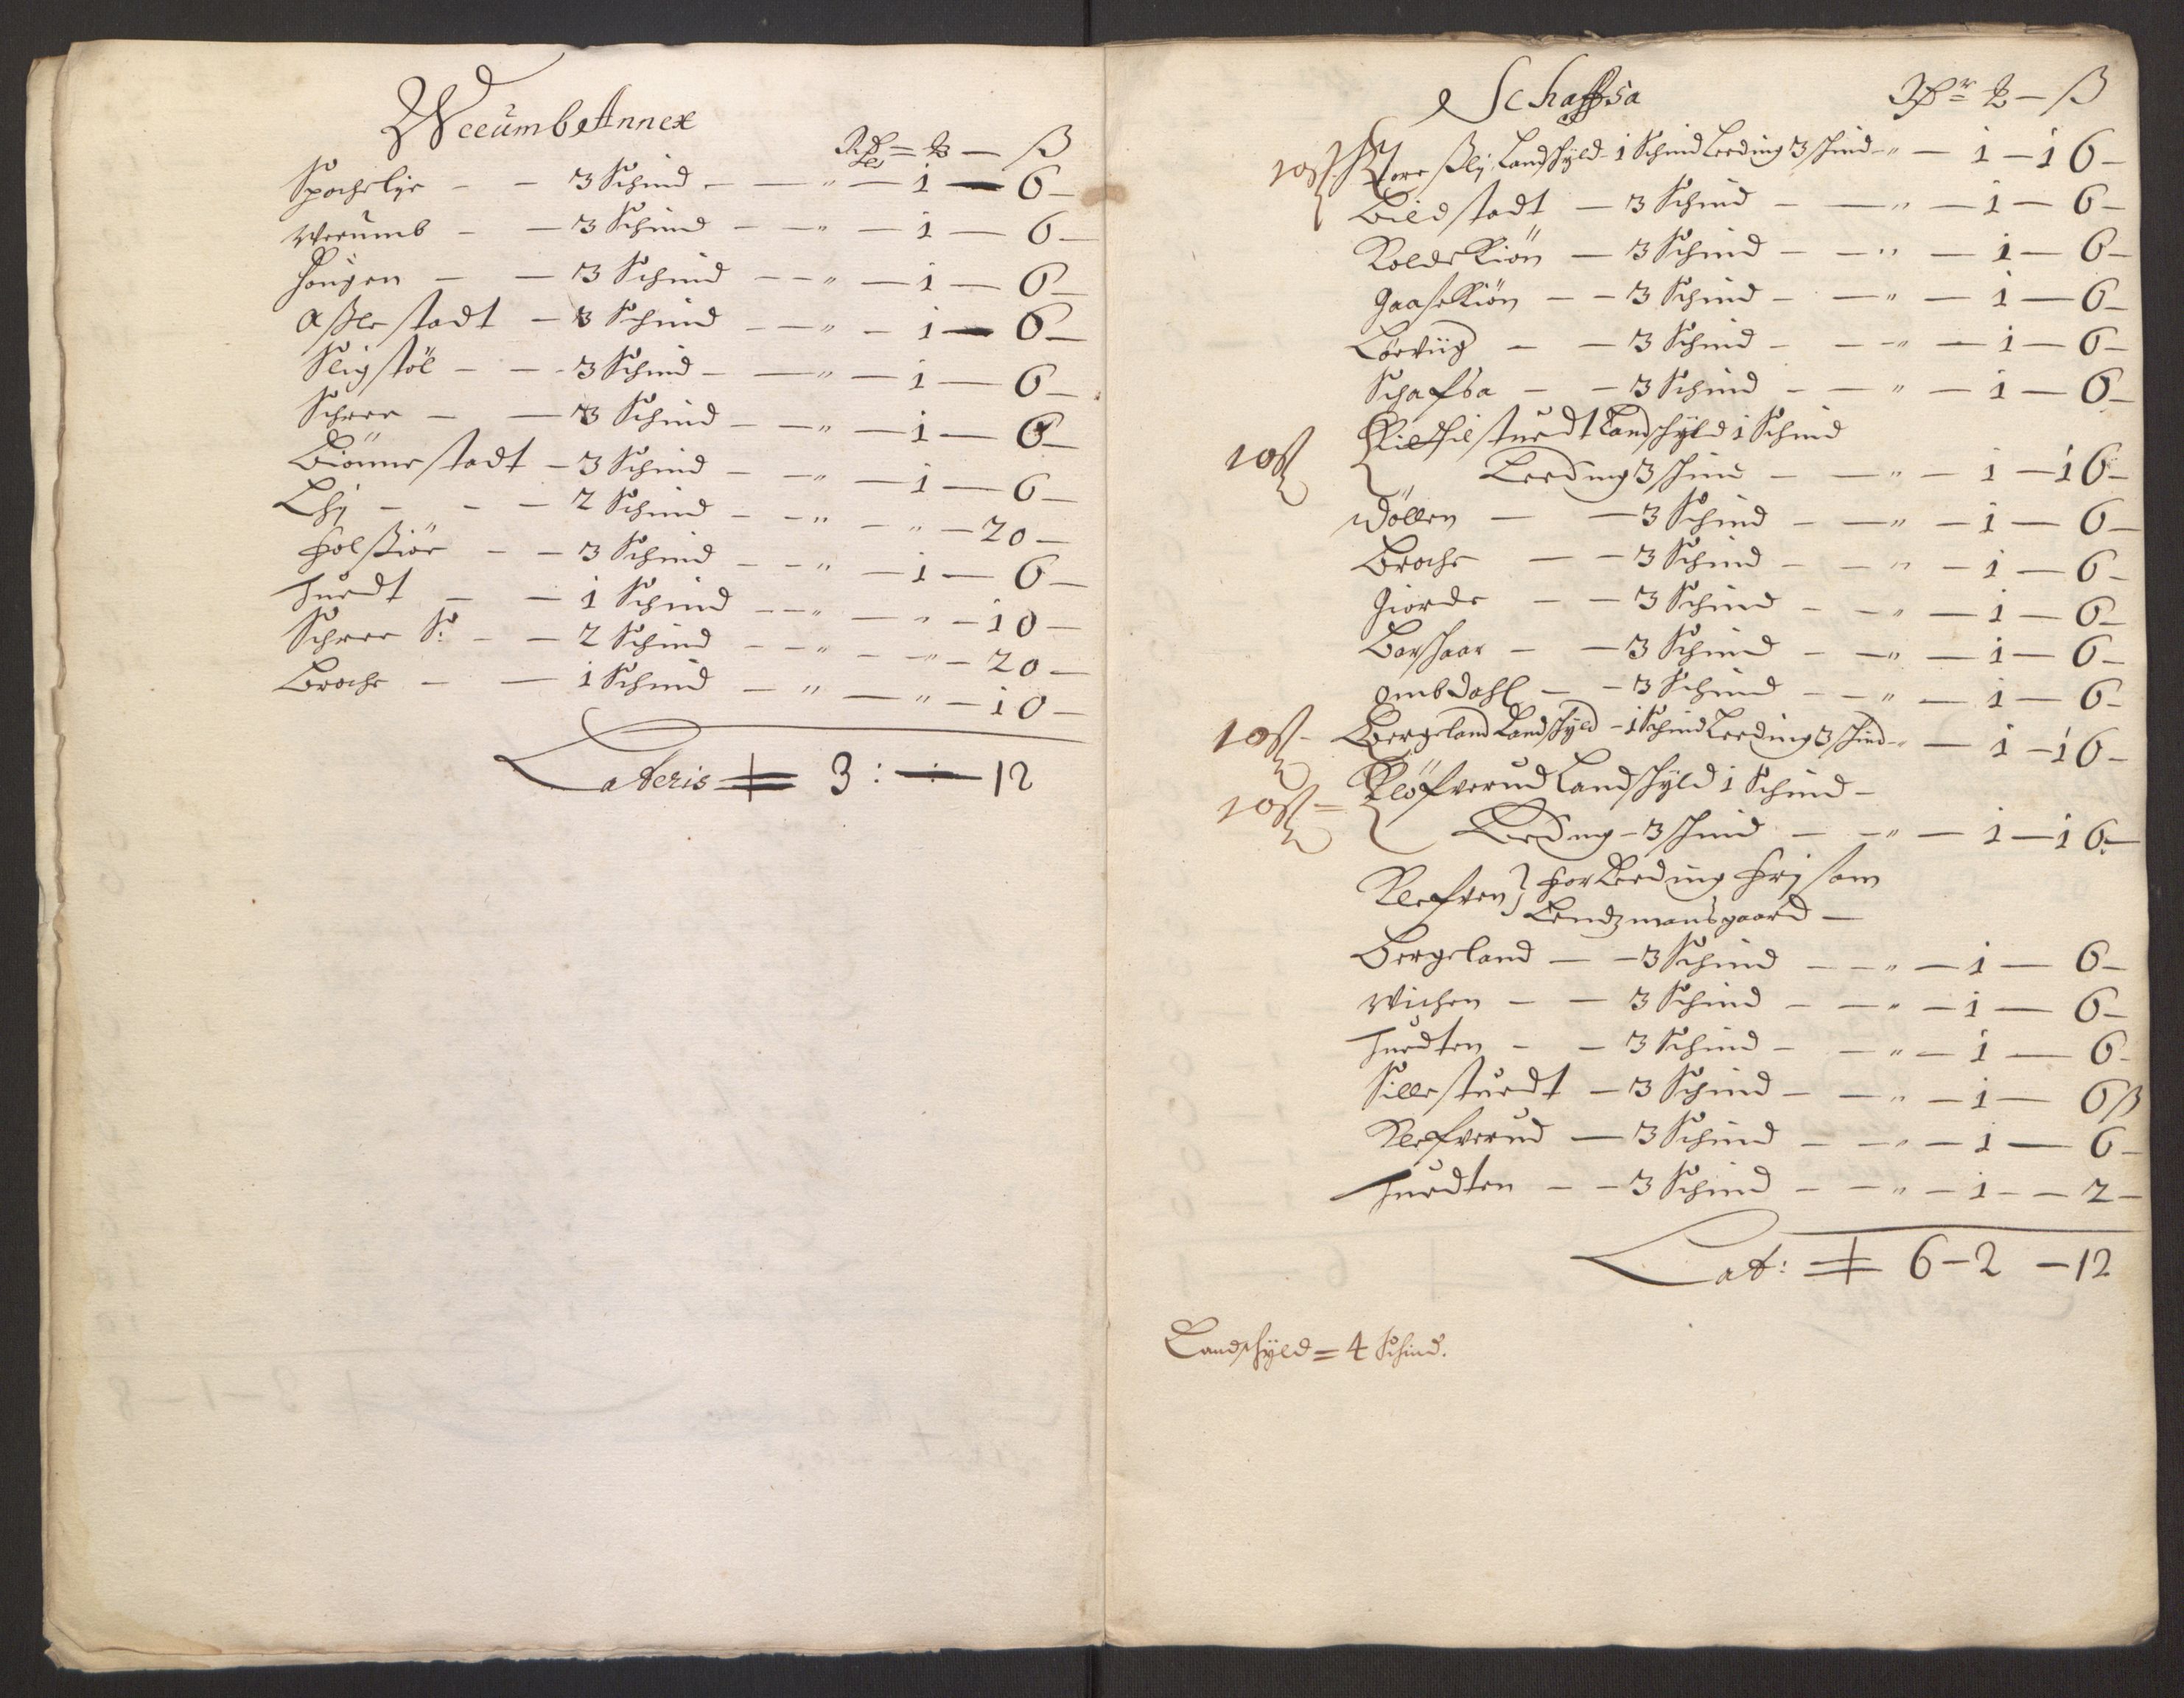 Weeumb Annex
Rdr = ₰ — ß
Spochelie - - 3 Schind - — " — 1 — 6 —
Weeumb - — 3 Schind - — " — 1 — 6 —
Hougen — — 3 Schind - — " — 1 — 6 —
Aßlestadt — 3 Schind - — " — 1 — 6 —
Sligstöl - — 3 Schind - — " — 1 — 6 —
Schree — — 3 Schind - — " — 1 — 6 —
Biönnestadt — 3 Schind - — " — 1 — 6 —
Lhj - - — 2 Schind - - " — " — 20 —
Holßiör - — 3 Schind - - " — 1 — 6 —
Tuedt — — 1 Schind - — " — " — 10 —
Schree S: - — 2 Schind - - " — " — 20 —
Broche - — 1 Schind — " — " — 10 —
Lateris 3 : — : — 12
Schaffsa
Rdr = ₰ — ß
10ß Landschyld - 1 Schind Leeding 3 schind - " — 1 — 16 —
Bildstadt — 3 Schind - — " — 1 — 6 —
Kolde Kiön — 3 Schind - — " — 1 — 6 —
Gaase Kiön - — 3 Schind - — " — 1 — 6 —
Lörviig — — 3 Schind - — " — 1 — 6 —
Schafsa - — 3 Schind - — " — 1 — 6 —
Kilthilstuedt Landschyld 1 Schind
10ß Leeding 3 schind - — " — 1 — 16 —
Döllen — — 3 Schind - — " — 1 — 6 —
Broche — — 3 Schind - — " — 1 — 6 —
Giorde - — 3 Schind - — " — 1 — 6 —
Borschaar - — 3 Schind - — " — 1 — 6 —
Ombdahl — - 3 Schind - — " — 1 — 6 —
10ß - Bergeland Landschyld - 1 Schind Leeding 3 schind - " — 1 — 16 —
Klöfverud Landschyld 1 Schind —
10ß = Leeding - 3 schind — - " — 1 — 16 —
Klefven } for Leeding frj som
Lendzmansgaard —
Bergeland — — 3 Schind - — " — 1 — 6 —
Wichen - — 3 Schind - — " — 1 — 6 —
Tuedten - — 3 Schind - — " — 1 — 6 -
Sillestuedt — 3 Schind - — " — 1 — 6 ß
Klefverud — 3 Schind - — " — 1 — 6 —
Tuedten - — 3 Schind - — " — 1 - — 2 —
Lat: 6 — 2 — 12
Landschyld = 4 Schind.